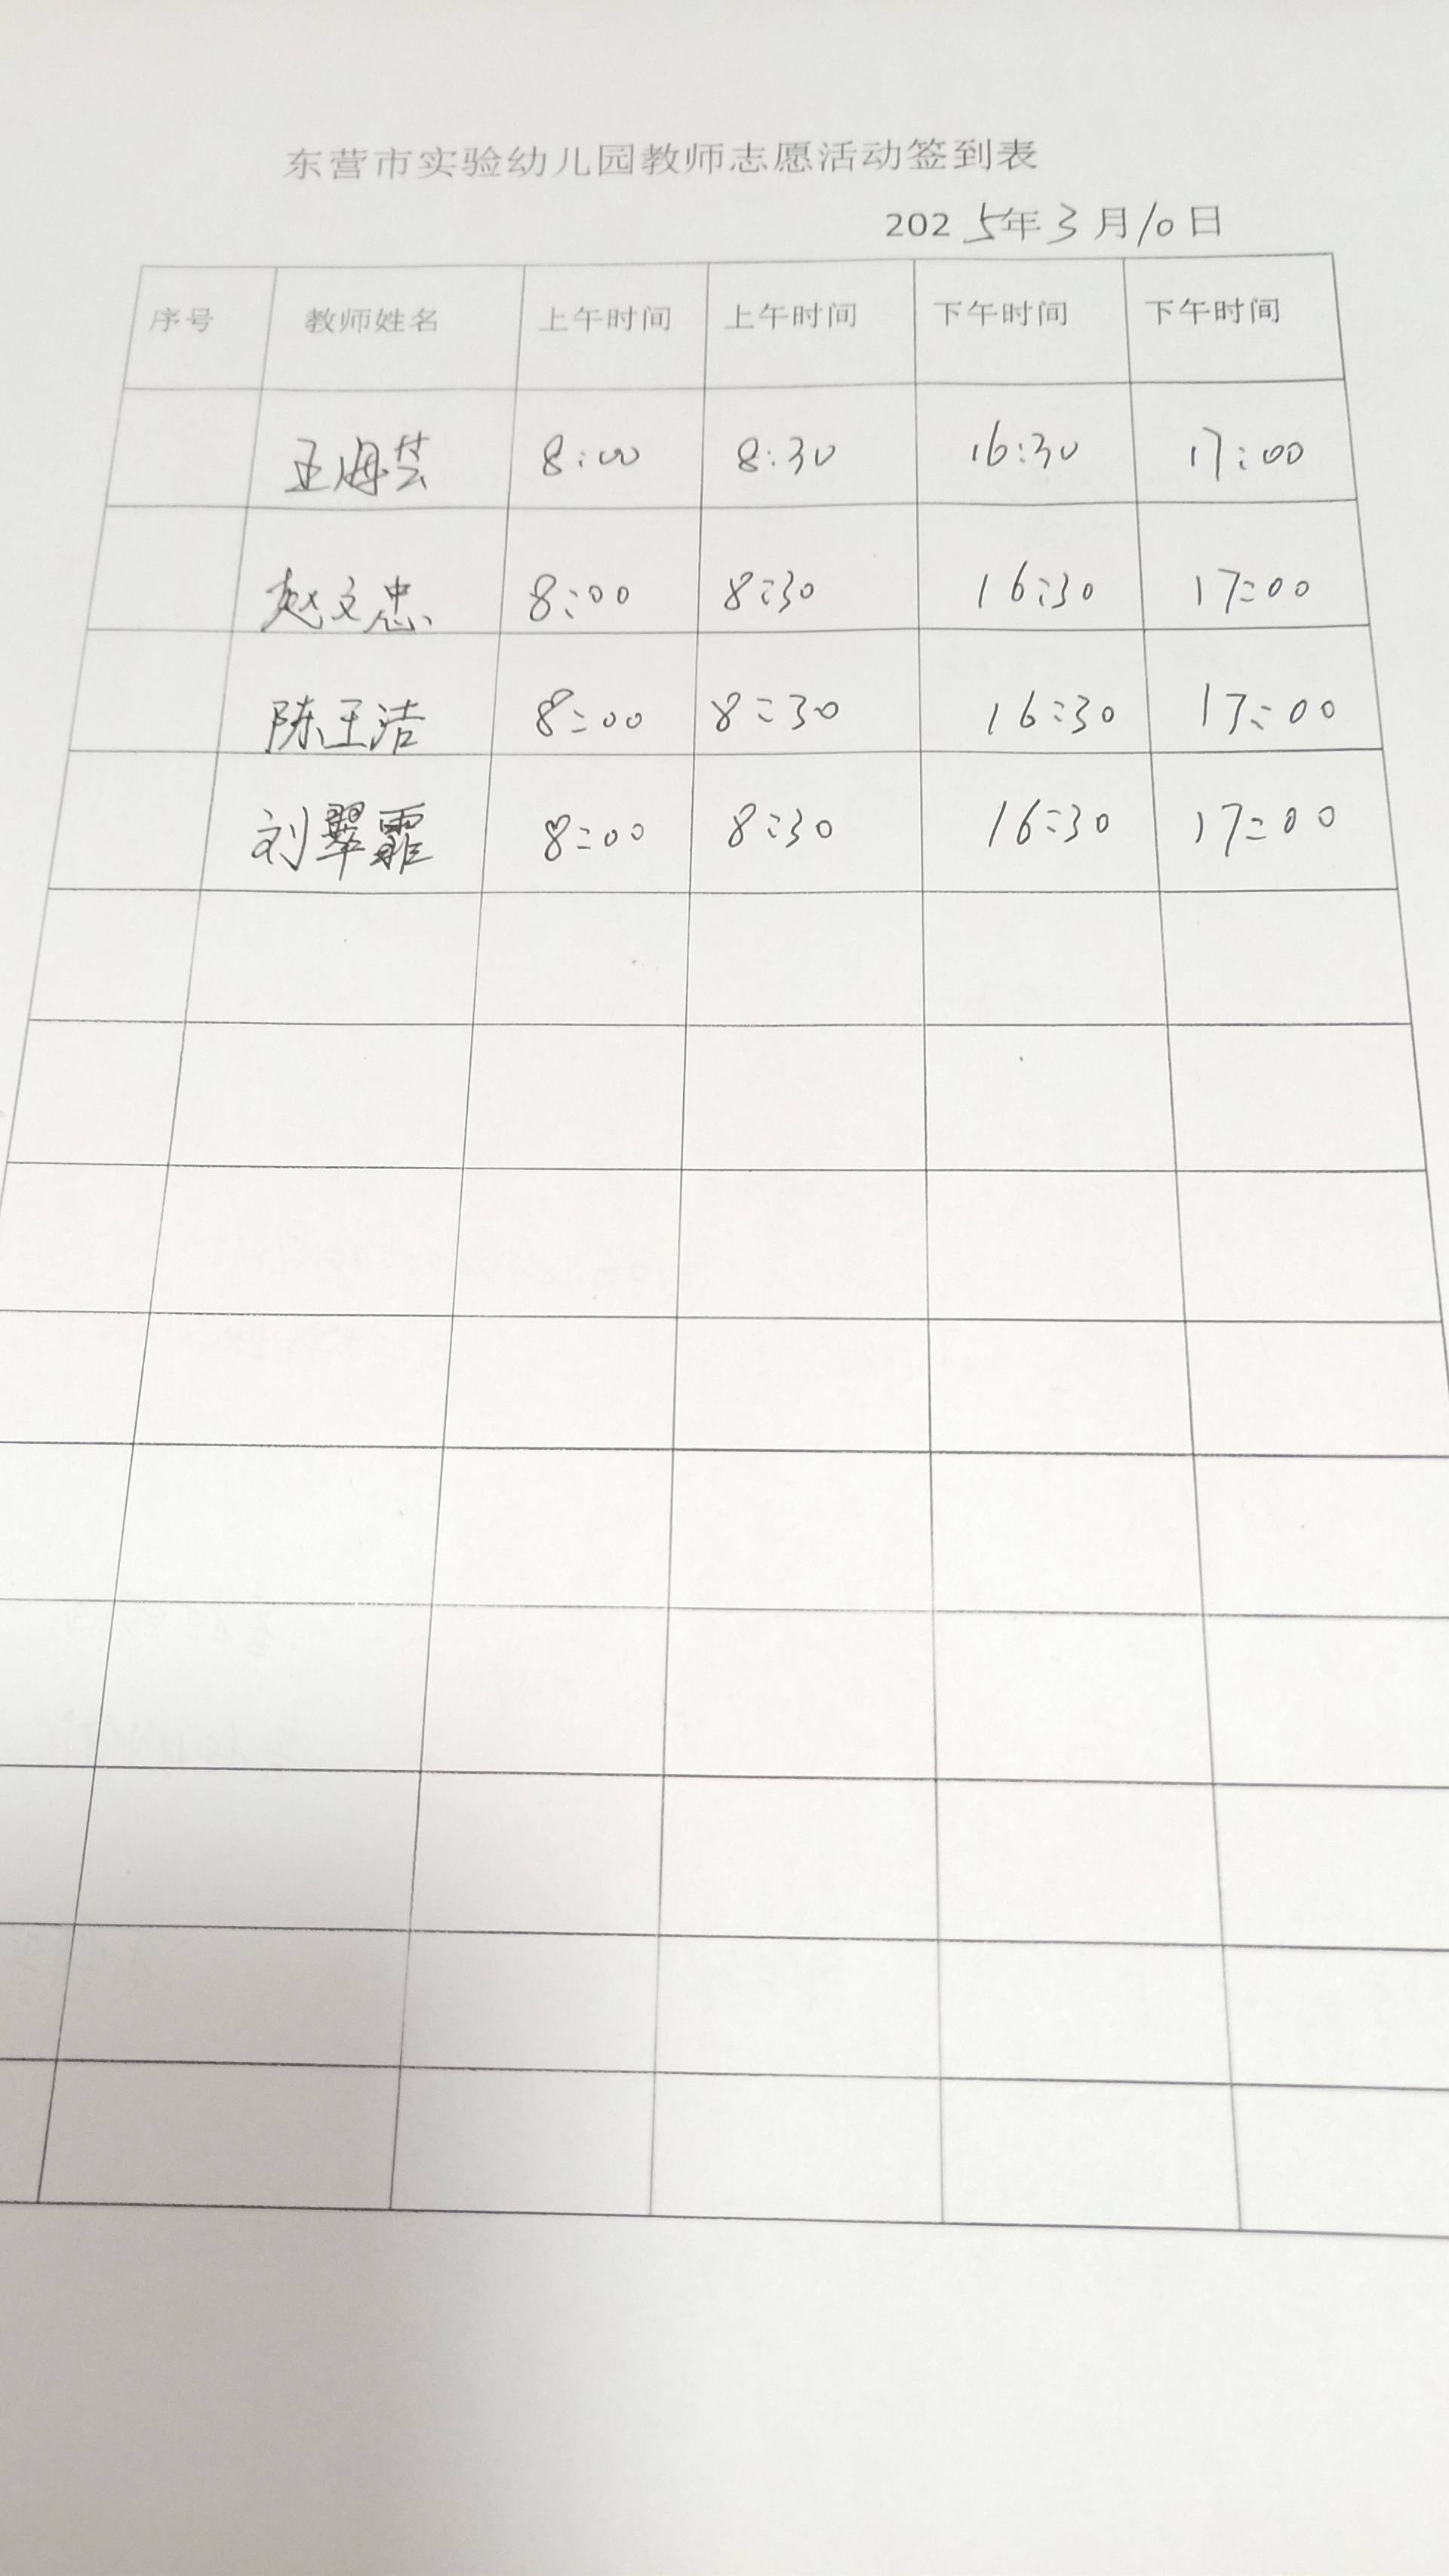 东营市实验幼儿园教师志愿活动签到表
2025年3月10日
序号 教师姓名 上午时间 上午时间 下午时间 下午时间
王海芸 8:00 8:30 16:30 17:00
赵文忠 8:00 8:30 16:30 17:00
陈玉洁 8:00 8:30 16:30 17:00
刘翠霏 8:00 8:30 16:30 17:00